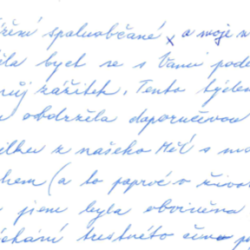 žení spoluobčané x a moje n
la bych se s Vámi poděl
ůj zážitek. Tento týden
obdržela doporučenou
ilku z našeho MěÚ s m
hem (a to poprvé v život
jsem byla obviněna
chání trestného činu